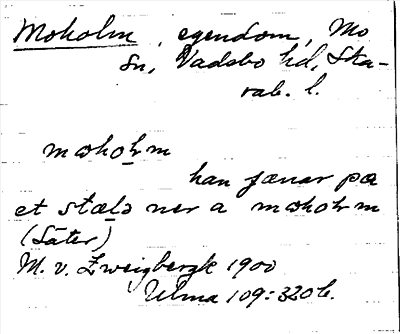 Moholm, egendom, Mo
sn, Vadsbo hd, Ska-
rab. l.
mohoḷm
han jænar pæ
et stælə ner a mohoḷm
(Säter)
M. v. Zweigbergk 1900
Ulma 109:320 b.